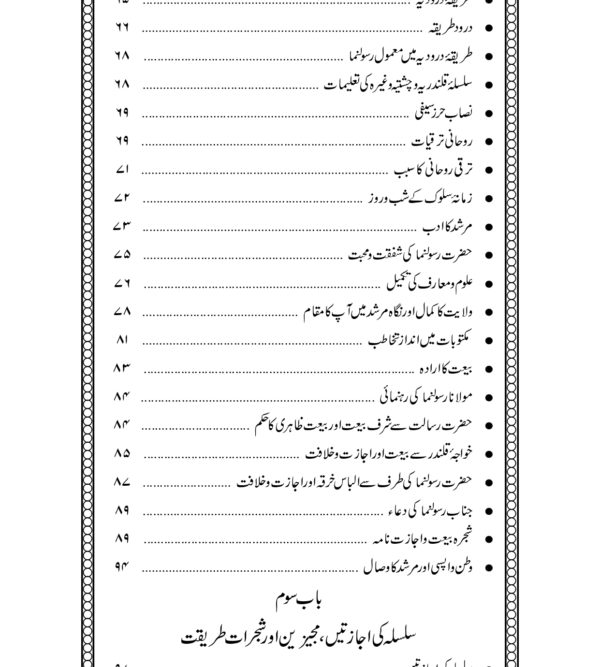 درود طریقہ ........ ۶۶
طریقۂ درودیہ میں معمول رسولنما ........ ۶۸
سلسلۂ قلندریہ و چشتیہ وغیرہ کی تعلیمات ........ ۶۸
نصاب حرز سیفی ........ ۶۹
روحانی ترقیات ........ ۶۹
ترقی روحانی کا سبب ........ ۷۱
زمانۂ سلوک کے شب و روز ........ ۷۲
مرشد کا ادب ........ ۷۳
حضرت رسولنما کی شفقت و محبت ........ ۷۵
علوم و معارف کی تکمیل ........ ۷۶
ولایت کا کمال اور نگاہ مرشد میں آپ کا مقام ........ ۷۸
مکتوبات میں انداز تخاطب ........ ۸۱
بیعت کا ارادہ ........ ۸۳
مولانا رسولنما کی رہنمائی ........ ۸۴
حضرت رسالت سے شرف بیعت اور بیعت ظاہری کا حکم ........ ۸۴
خواجۂ قلندر سے بیعت اور اجازت و خلافت ........ ۸۵
حضرت رسولنما کی طرف سے الباس خرقہ اور اجازت و خلافت ........ ۸۷
جناب رسولنما کی دعاء ........ ۸۹
شجرہ بیعت و اجازت نامہ ........ ۸۹
وطن واپسی اور مرشد کا وصال ........ ۹۴
باب سوم
سلسلہ کی اجازتیں، مجیزین اور شجرات طریقت